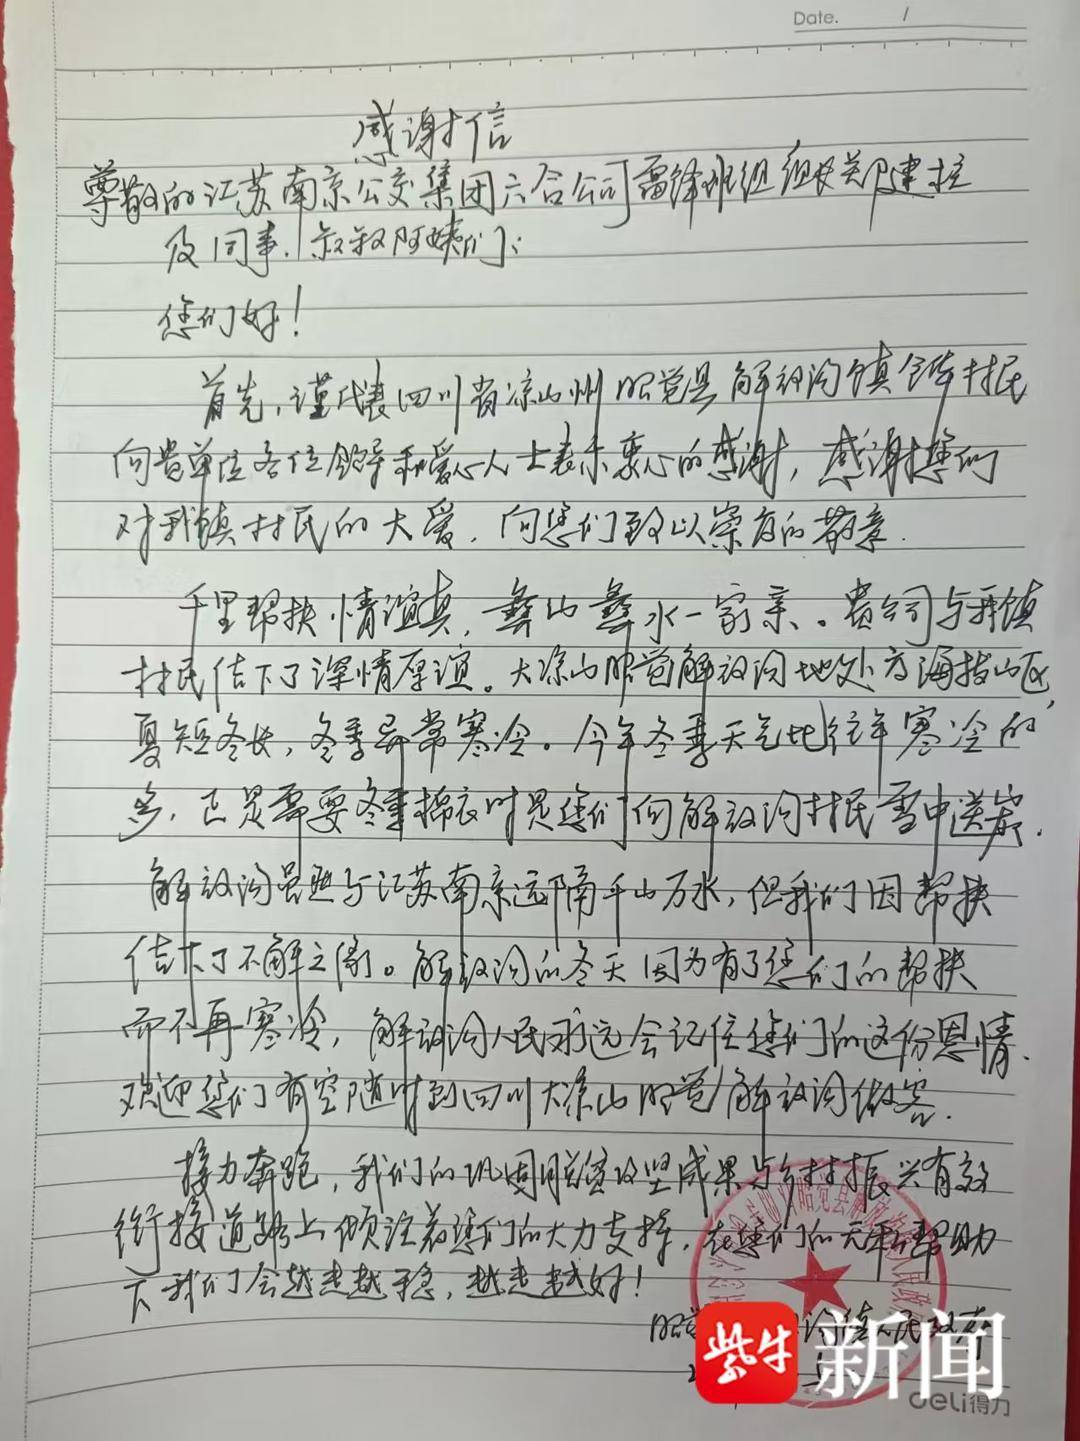 Date. /
感谢信
尊敬的江苏南京公交集团六合公司雷锋班组组长郑建柱
及同事、叔叔阿姨们：
您们好！
首先，谨代表四川省凉山州昭觉县解放沟镇全体村民
向贵单位各位领导和爱心人士表示衷心的感谢，感谢您们
对我镇村民的大爱，向您们致以崇高的敬意。
千里帮扶情谊真，彝山彝水一家亲。贵公司与我镇
村民结下了深情厚谊。大凉山昭觉解放沟地处高海拔山区，
夏短冬长，冬季异常寒冷。今年冬季天气比往年寒冷的
多，正是需要冬季棉衣时是您们向解放沟村民雪中送炭。
解放沟虽然与江苏南京远隔千山万水，但我们因帮扶
结下了不解之缘。解放沟的冬天因为有了您们的帮扶
而不再寒冷，解放沟人民永远会记住您们的这份恩情。
欢迎您们有空随时到四川大凉山昭觉解放沟做客。
接力奔跑，我们的巩固脱贫攻坚成果与乡村振兴有效
衔接道路上倾注着您们的大力支持，在您们的无私帮助
下我们会越走越稳，越走越好！
昭觉 沟镇人民政府
紫牛新闻
deli得力